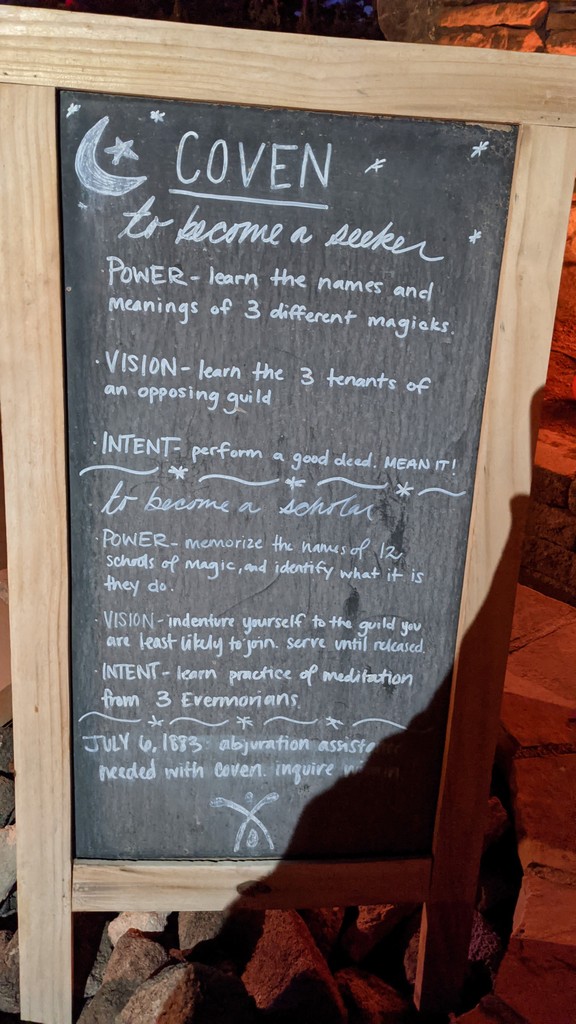 COVEN
to become a seeker
· POWER - learn the names and
meanings of 3 different magicks.
· VISION - learn the 3 tenants of
an opposing guild
· INTENT - perform a good deed. MEAN IT!
to become a scholar
· POWER - memorize the names of 12
schools of magic, and identify what it is
they do.
· VISION - indenture yourself to the guild you
are least likely to join. serve until released.
· INTENT - learn practice of meditation
from 3 Evermorians
JULY 6, 1883: abjuration assistance
needed with coven. inquire within